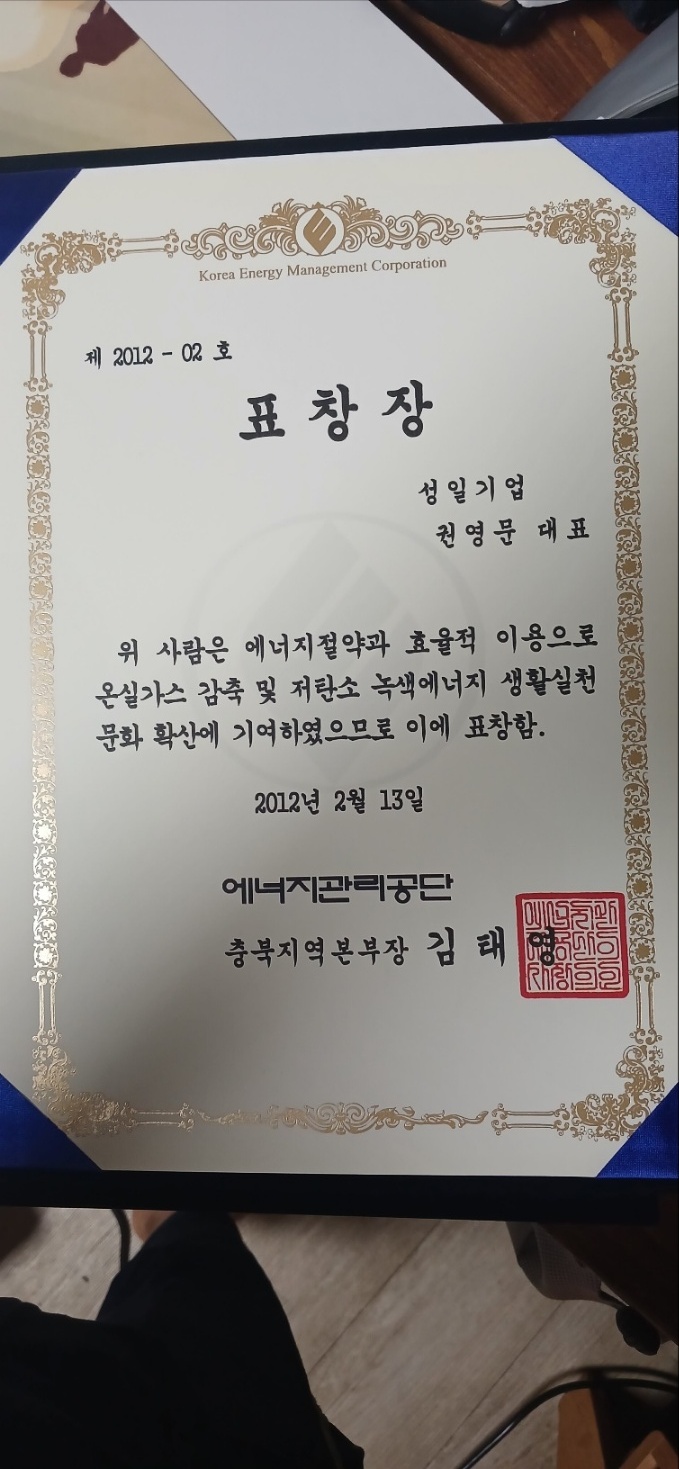 Korea Energy Management Corporation
제 2012 - 02 호
표 창 장
성일기업
권영문 대표
위 사람은 에너지절약과 효율적 이용으로
온실가스 감축 및 저탄소 녹색에너지 생활실천
문화 확산에 기여하였으므로 이에 표창함.
2012년 2월 13일
에너지관리공단
충북지역본부장 김 태 영